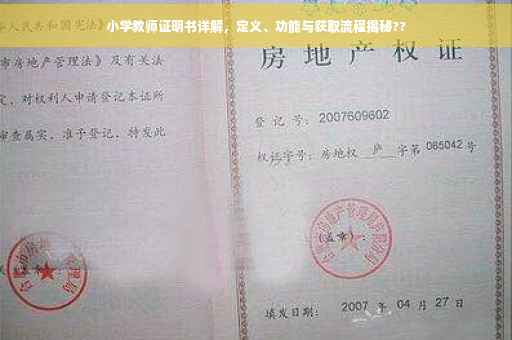 小学教师证明书详解，定义、功能与获取流程揭秘??
人民共和国宪法》
市房地产管理法》及有关法
定，对权利人申请登记本证所
审查属实，准予登记，特发此
房地产权证
登记号：2007609602
权证字号：房地权 庐 字第 085042 号
(盖章)：
填发日期： 2007 年 04 月 27 日